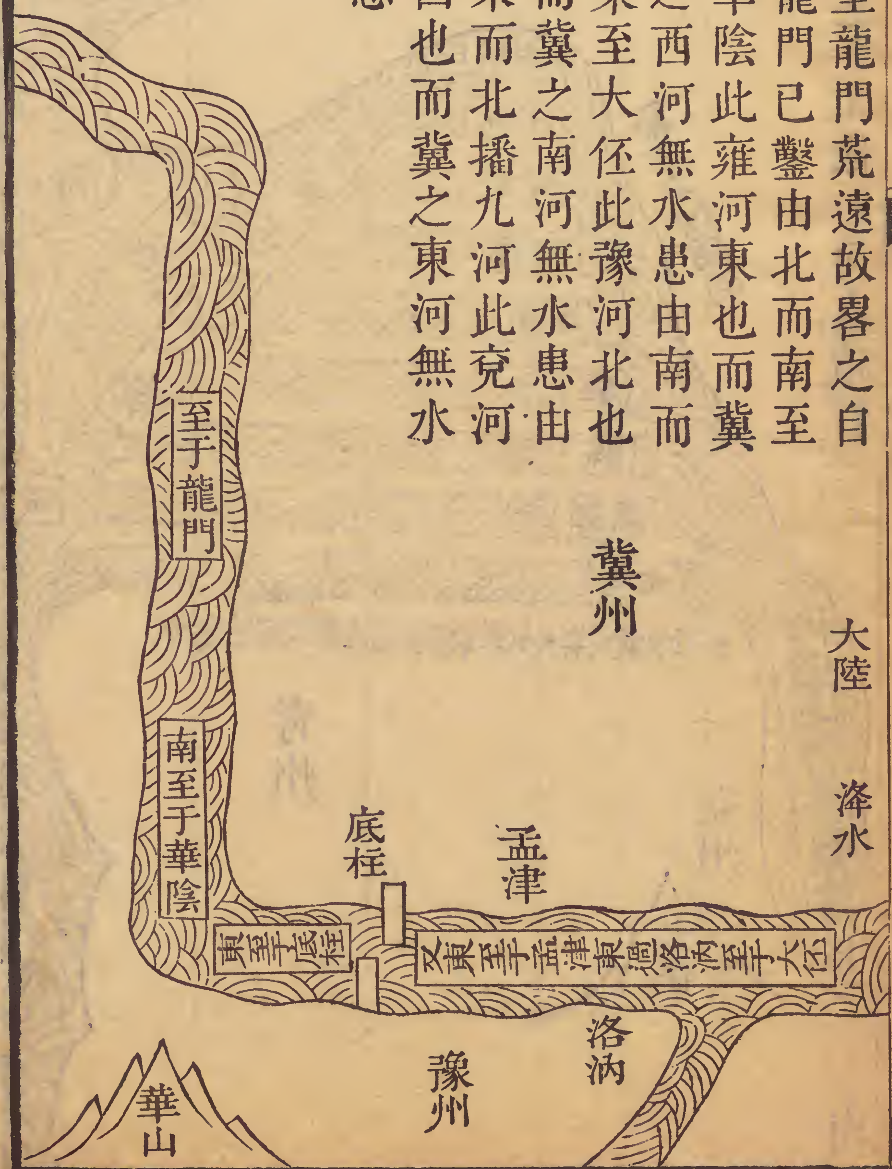 至龍門荒遠故畧之自
龍門已鑿由北而南至
華陰此雍河東也而冀
之西河無水患由南而
東至大伾此豫河北也
而冀之南河無水患由
東而北播九河此兗河
西也而冀之東河無水
患
大陸
洚水
冀州
孟津
底柱
至于龍門
南至于華陰
東至于底柱
又東至于孟津東過洛汭至于大伾
洛汭
豫州
華山